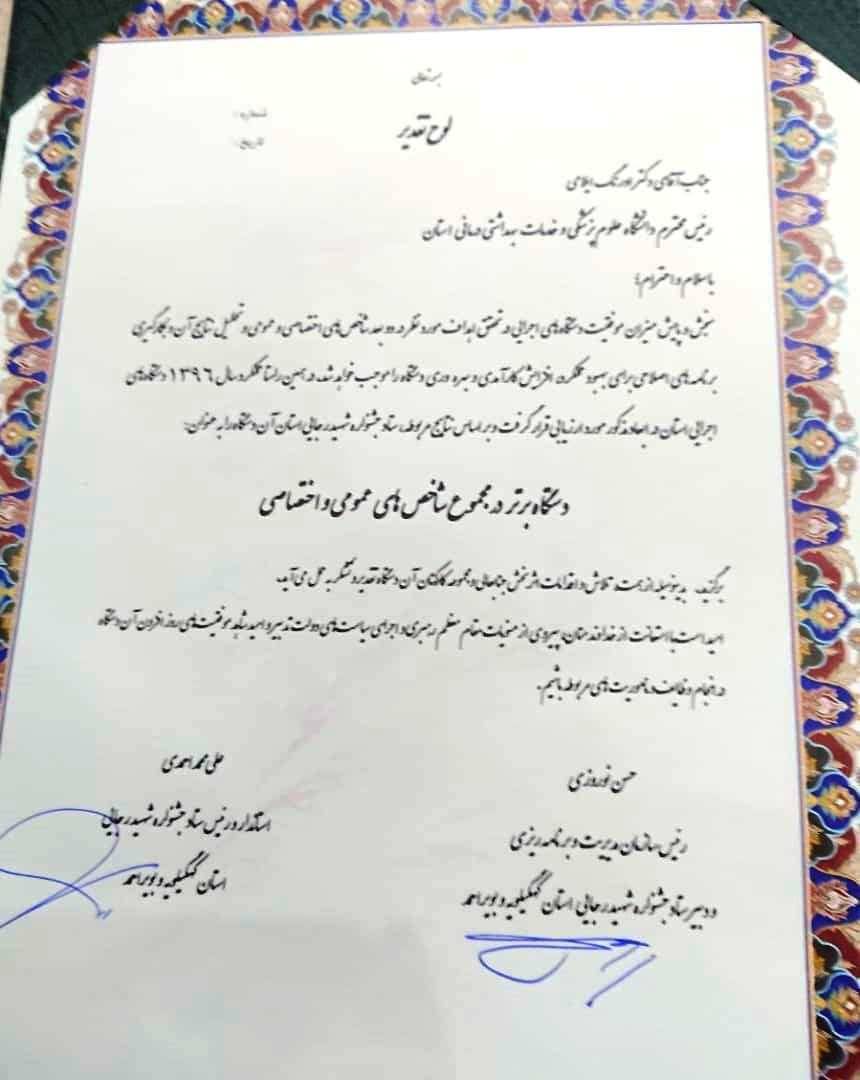 بسمه تعالی
لوح تقدیر
شماره:
تاریخ:
جناب آقای دکتر اورنگ ایلامی
رئیس محترم دانشگاه علوم پزشکی و خدمات بهداشتی درمانی استان
با سلام و احترام؛
سنجش و پایش میزان موفقیت دستگاه‌های اجرایی در تحقق اهداف مورد نظر در دو بعد شاخص‌های اختصاصی و عمومی و تحلیل نتایج آن و بکارگیری
برنامه‌های اصلاحی برای بهبود عملکرد، افزایش کارآمدی و بهره وری دستگاه را موجب خواهد شد. در همین راستا عملکرد سال ۱۳۹۶ دستگاه‌های
اجرایی استان در ابعاد مذکور مورد ارزیابی قرار گرفت و بر اساس نتایج مربوطه، ستاد جشنواره شهید رجایی استان آن دستگاه را به عنوان:
دستگاه برتر در مجموع شاخص های عمومی و اختصاصی
برگزید. بدینوسیله از همت، تلاش و اقدامات اثربخش جنابعالی و مجموعه کارکنان آن دستگاه تقدیر و تشکر به عمل می‌آید.
امید است با استعانت از خداوند منان، پیروی از منویات مقام معظم رهبری و اجرای سیاست‌های دولت تدبیر و امید شاهد موفقیت‌های روز افزون آن دستگاه
در انجام وظایف و ماموریت‌های مربوطه باشیم.
حسن نوروزی
رئیس سازمان مدیریت و برنامه ریزی
و دبیر ستاد جشنواره شهید رجایی استان کهگیلویه و بویراحمد
علی محمد احمدی
استاندار و رئیس ستاد جشنواره شهید رجایی
استان کهگیلویه و بویراحمد